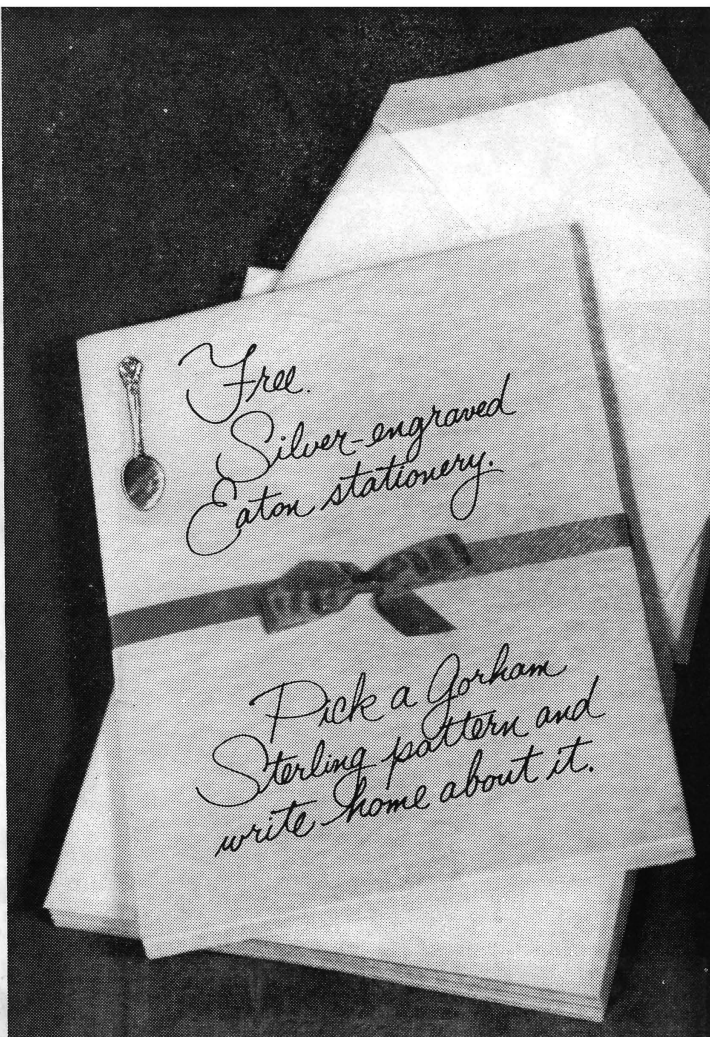 Free.
Silver-engraved
Eaton stationery.
Pick a Gorham
Sterling pattern and
write home about it.